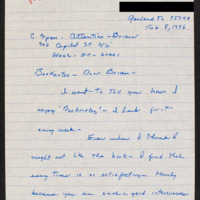 Garland Tx 75040
Feb. 8, 1996
C. Span: Attention - Brian
400 Capitol St NW
Wash - DC - 20001
Booknotes - Dear Brian -
I want to tell you how I
enjoy "Booknotes" - I look for it
every week -
Even when I think I
might not like the book - I find that
every time is so satisfactory. Mainly
because you are such a good interviewer